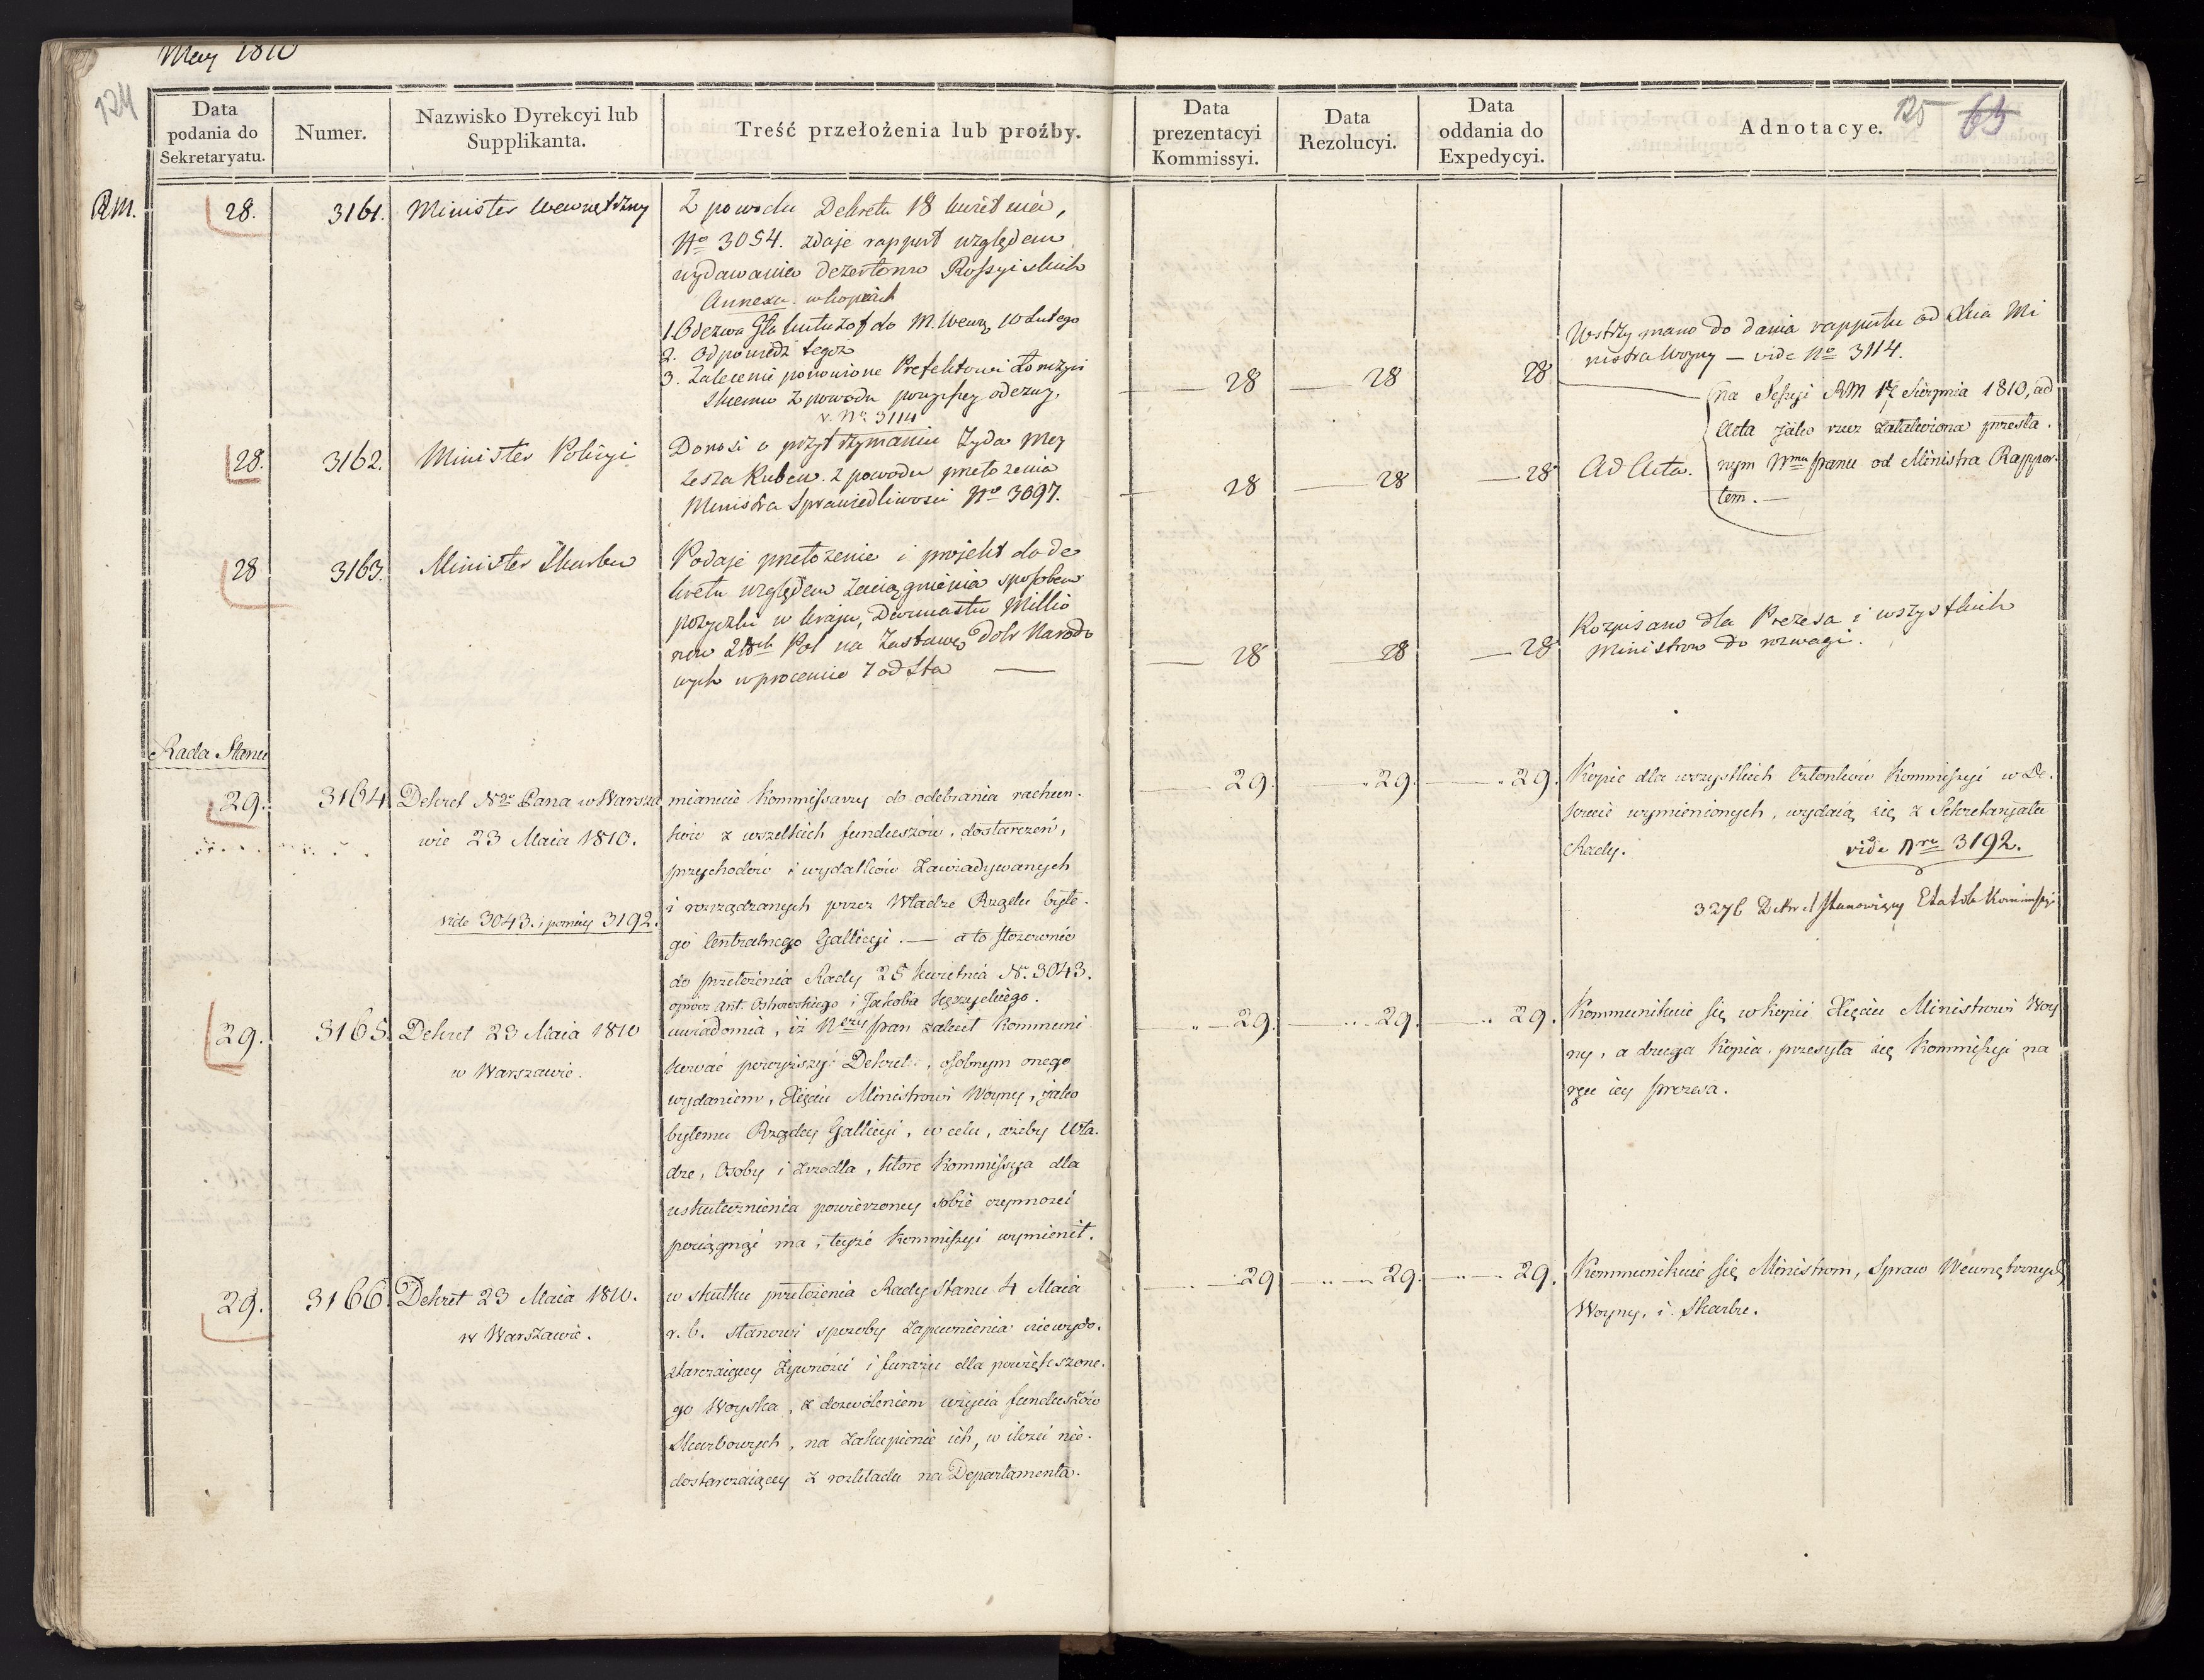 May 1810
124
Data podania do Sekretaryatu.
Numer.
Nazwisko Dyrekcyi lub Supplikanta.
Treść przełożenia lub proźby.
Data prezentacyi Kommissyi.
Data Rezolucyi.
Data oddania do Expedycyi.
Adnotacye.
125 63
RM.
28. 3161. Minister Wewnętrzny
Z powodu Dekretu 18 kwietnia,
No 3054. zdaje rapport względem
wydawania dezertorow Rossyiskich
Annexa. w kopiach
1. Odezwa Gła Kutuzof do M. Wewn. 10 Lutego
2. Odpowiedz tegoż
3. Zalecenie ponowione Prefektowi Łomżyń
skiemu z powodu powyższey odezwy.
v. No 3114
28 28 28
Wstrzymano do dania rapportu od Xcia Mi
nistra Woyny — vide No 3114.
na Sessyi RM 17 Sierpnia 1810, ad
Acta jako rzecz załatwiona przesła.
nym Nmu Panu od Ministra Rappor.
tem. —
28. 3162. Minister Policyi
Donosi o przytrzymaniu Żyda Moy
żesza Ruben. z powodu przełożenia
Ministra Sprawiedliwosci No 3097.
28 28 28
Ad Acta.
28 3163. Minister Skarbu
Podaje przełożenie i projekt do de
kretu względem zaciągnienia sposobem
pożyczki w kraju, Dwunastu Millio
now Złch Pol na Zastawę dobr Narodo
wych w procencie 7 od Sta —
28 28 28
Rozpisano dla Prezesa i wszystkich
Ministrow do rozwagi.
Rada Stanu
29. 3164. Dekret Ngo Pana w Warsza
wie 23 Maia 1810.
vide 3043. i poniżey 3192.
mianuie Kommissarzy do odebrania rachun.
ków z wszelkich funduszów, dostarczeń,
przychodów i wydatków Zawiadywanych
i rozrządzanych przez Władze Rządu byłe.
go Centralnego Gallicyi. — a to stosownie
do przełożenia Rady 25 kwietnia Nr. 3043.
oprócz Ant. Ostrowskiego i Jakoba Kęszyckiego.
29. 29. 29.
Kopie dla wszystkich Członków Kommissyi w De.
krecie wymienionych, wydaią się z Sekretaryatu
Rady.
vide Nro 3192.
3276 Dekret stanowiący Etat tole Kommissyi
29. 3165. Dekret 23 Maia 1810
w Warszawie.
uwiadomia, iż Nszy Pan zalecił kommuni
kować powyższy Dekret, osobnym onego
wydaniem, Xięciu Ministrowi Woyny, jako
byłemu Rządcy Gallicyi, w celu, ażeby Wła.
dze, Osoby i źrzodła, które Kommissya dla
uskutecznienia powierzoney sobie czynności
pociągnąć ma, teyże Kommissyi wymienił.
29. 29. 29.
Kommunikuie się w kopii Xięciu Ministrowi Woy
ny, a druga kopia przesyła się Kommissyi na
ręce iey prezesa.
29. 3166. Dekret 23 Maia 1810.
w Warszawie.
w skutku przełożenia Rady Stanu 4 Maia
r. b. stanowi sposoby zapewnienia niewydo.
starczaiącey Żywności i furażu dla powiększone.
go Woyska, z dozwoleniem użycia funduszów
Skarbowych, na zakupienie ich, w ilości nie.
dostarczaiącey z rozkładu na Departamenta.
29 29. 29.
Kommunikuie się Ministrom, Spraw Wewnętrznych
Woyny, i Skarbu.